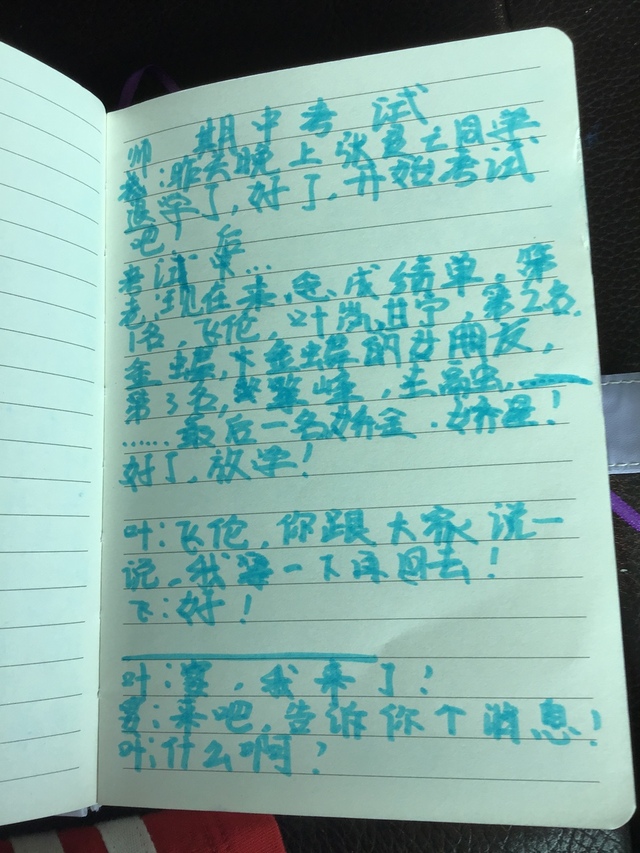 期中考试
帅哥:昨天晚上张 同学
退学了,好了,开始考试
吧
考试后…
老:现在来念成绩单。第
1名,飞伦,叶 甘宁,第2名,
金虫层,十金虫层的女朋友,
第3名, 峰,王高虫,——
……最后一名娇金·娇星!
好了,放学!
叶:飞伦,你跟大家说一
说,我等一下再回去!
飞:好!
叶: ,我来了!
来吧,告诉你个消息!
叶:什么啊?